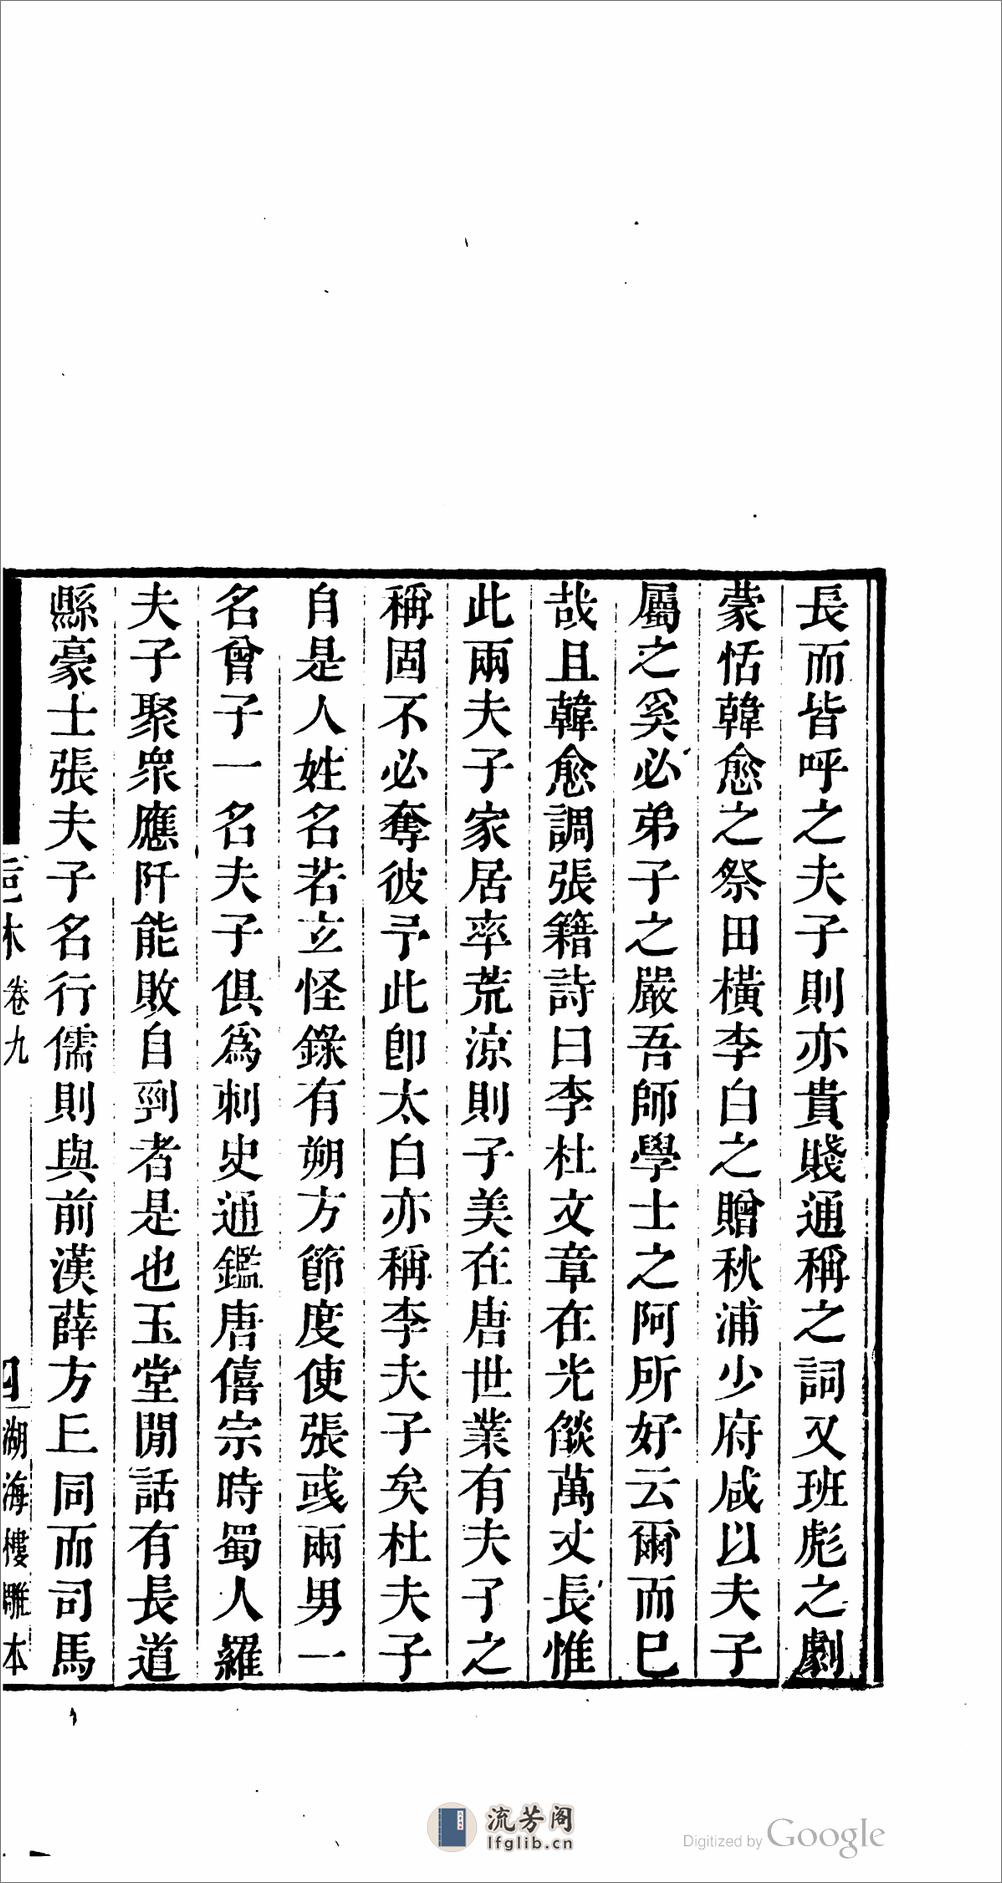 長而皆呼之夫子則亦貴賤通稱之詞又班彪之劇
蒙恬韓愈之祭田橫李白之贈秋浦少府咸以夫子
屬之奚必弟子之嚴吾師學士之阿所好云爾而巳
哉且韓愈調張籍詩曰李杜文章在光燄萬丈長惟
此兩夫子家居率荒涼則子美在唐世業有夫子之
稱固不必奪彼予此卽太白亦稱李夫子矣杜夫子
自是人姓名若玄怪錄有朔方節度使張彧兩男一
名曾子一名夫子俱爲刺史通鑑唐僖宗時蜀人羅
夫子聚衆應阡能敗自剄者是也玉堂閒話有長道
縣豪士張夫子名行儒則與前漢薛方丘同而司馬
卷九
四
湖海樓雕本
流芳阁
lfglib.cn
Digitized by Google